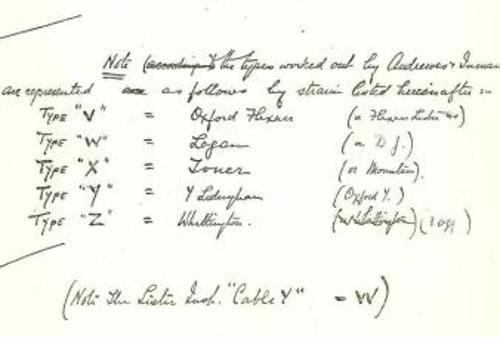 Note (according to the types worked out by Andrewes & Inman
are represented as as follows by strain listed hereinafter :-
TYPE "V" = Oxford Flexner (or Flexner Lister)
TYPE "W" = Logan (or D J.)
TYPE "X" = Toner (or Mountain).
TYPE "Y" = Y Ledingham (Oxford Y.)
TYPE "Z" = Whittington. (Whittington) (1099)
(Note The Lister Inst. "Cable Y" = VV)